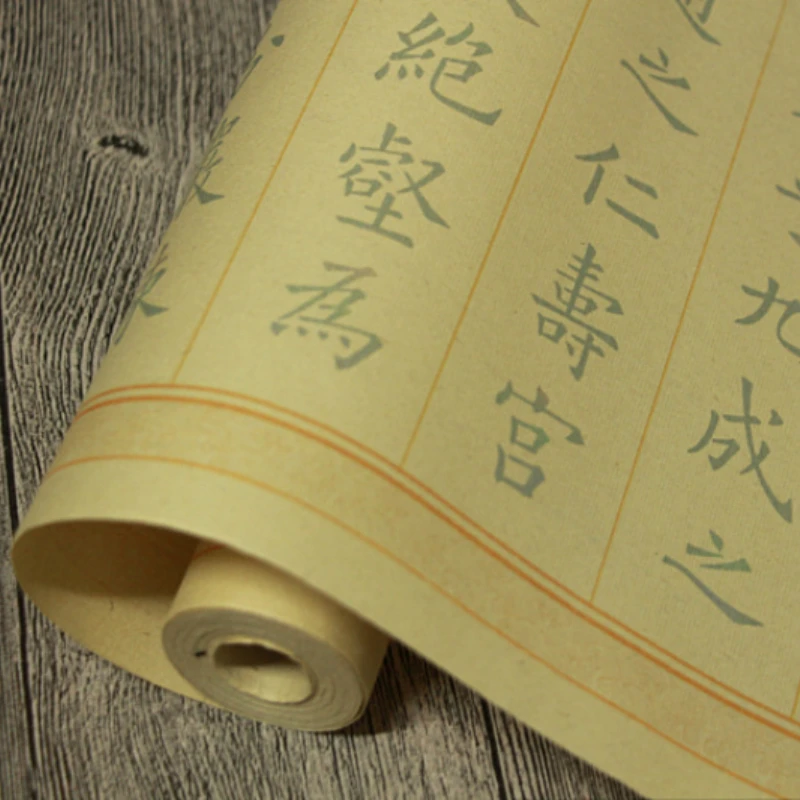 九成之
之仁壽宮
絶壑為